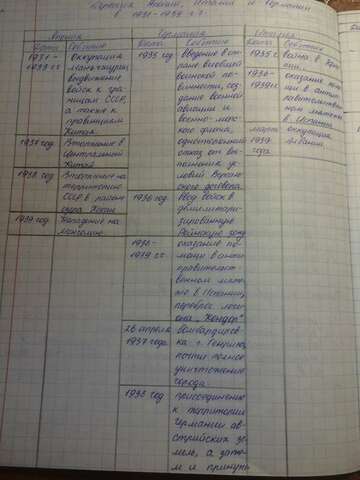 Агрессия Японии, Италии и Германии
в 1931-1939 г.г.
Япония
Дата
Событие
1931-
1933 гг
оккупация
маньчжурии
выдвижение
войск к гра-
ницам СССР,
а также к
провинциям
Китая
1937 год
Вторжение в
Центральный
Китай
1938 год
Вторжение на
территорию
СССР в районе
озера Хасан
1939 год
Нападение на
монголию
Германия
Дата
Событие
1935 год
введение в ст-
ране всеобщей
воинской по-
винности, соз-
дание военной
авиации и
военно-морс-
кого флота,
односторонний
отказ от вы-
полнения ус-
ловий Версаль-
ского договора.
1936 год
Ввод войск в
демилитари-
зированную
Рейнскую зону
1936-
1939 гг.
оказание по-
мощи в анти-
правительст-
венном мяте-
же в Испании,
переброс леги-
она „Кондор"
26 апреля
1937 года
бомбардиров-
ка г. Герника,
почти полное
уничтожение
города.
1938 год
присоединение
к территории
Германии ав-
стрийских зе-
мель, а затем
Италия
Дата
Событие
1935 г.
война в
1936-
1939гг.
оказание помо-
щи в анти-
правительствен-
ном мятеже
в Испании
1939
года
оккупация
Албании